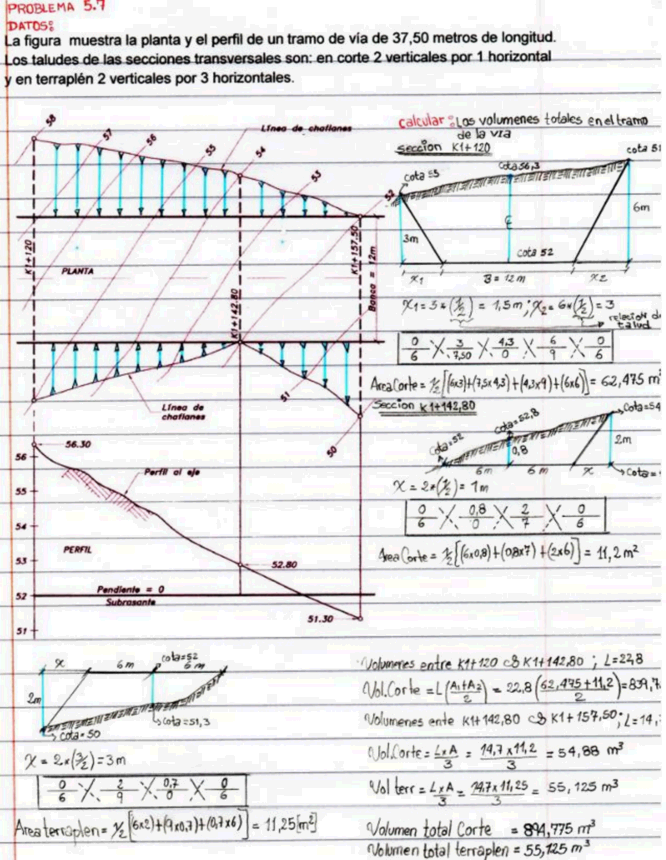 PROBLEMA 5.7
DATOS:
La figura muestra la planta y el perfil de un tramo de vía de 37,50 metros de longitud.
Los taludes de las secciones transversales son: en corte 2 verticales por 1 horizontal
y en terraplén 2 verticales por 3 horizontales.
58
57
56
55
54
53
52
Línea de chaflanes
K1+120
PLANTA
K1+142.80
K1+157.50
Banca = 12m
Línea de
chaflanes
51
50
56.30
56
Perfil al eje
55
54
53
PERFIL
52.80
Pendiente = 0
52
Subrasante
51.30
51
calcular: Los volumenes totales en el tramo
de la vía
sección K1+120
cota 55
cota 56,3
cota 5
6m
3m
₵
cota 52
x1
B=12m
x2
x1=3*(1/2) = 1,5m; x2=6*(1/2)=3
relación d
talud
0/6 X 3/7,50 X 4,3/0 X 6/9 X 0/6
Area Corte= 1/2[(6x3)+(7,5x4,3)+(4,3x9)+(6x6)] = 62,475 m
Sección K1+142,80
cota=52
cota=52,8
Cota=54
0,8
2m
6m
6m
x
Cota=
x=2*(1/2)=1m
0/6 X 0,8/0 X 2/7 X 0/6
Area Corte = 1/2[(6x0,8)+(0,8x7)+(2x6)] = 11,2 m²
x
6m
cota=52
6m
2m
cota=50
cota=51,3
x=2*(3/2)=3m
0/6 X 2/9 X 0,7/0 X 0/6
Area terraplen= 1/2[(6x2)+(9x0,7)+(0,7x6)] = 11,25[m²]
Volumenes entre K1+120 y K1+142,80 ; L=22,8
Vol.Corte = L(A1+A2/2) = 22,8(62,475+11,2/2)=839,7
Volumenes ente K1+142,80 y K1+157,50; L=14,
Vol Corte= LxA/3 = 14,7x11,2/3 = 54,88 m³
Vol terr = LxA/3 = 14,7x11,25/3 = 55,125 m³
Volumen total Corte = 894,775 m³
Volumen total terraplen = 55,125 m³